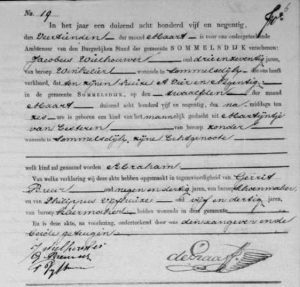 No. 19
In het jaar een duizend acht honderd vijf en negentig,
den veertienden der maand Maart is voor ons ondergeteekende
Ambtenaar van den Burgerlijken Stand der gemeente SOMMELSDIJK verschenen:
Jacobus Wielhouwer oud drie en zeventig jaren,
van beroep winkelier wonende te Sommelsdijk
dat te zijnen huize
in de gemeente SOMMELSDIJK, op den twaalfden der maand
Maart duizend acht honderd vijf en negentig, des na middags ten
zes ure, is geboren een kind van het mannelijk geslacht uit Martijntje
van Eesteren van beroep zonder
wonende te Sommelsdijk, zijne echtgenoote
welk kind zal genaamd worden Abraham
Van welke verklaring wij deze akte hebben opgemaakt in tegenwoordigheid van Gerrit
oud negen en dertig jaren, van beroep schoenmaker
en Philippus oud vijf en dertig jaren,
van beroep beiden wonende in deze gemeente
En is deze akte, na voorlezing, onderteekend door ons, den aangever en de
beide getuigen.
J Wielhouwer
de Graaff